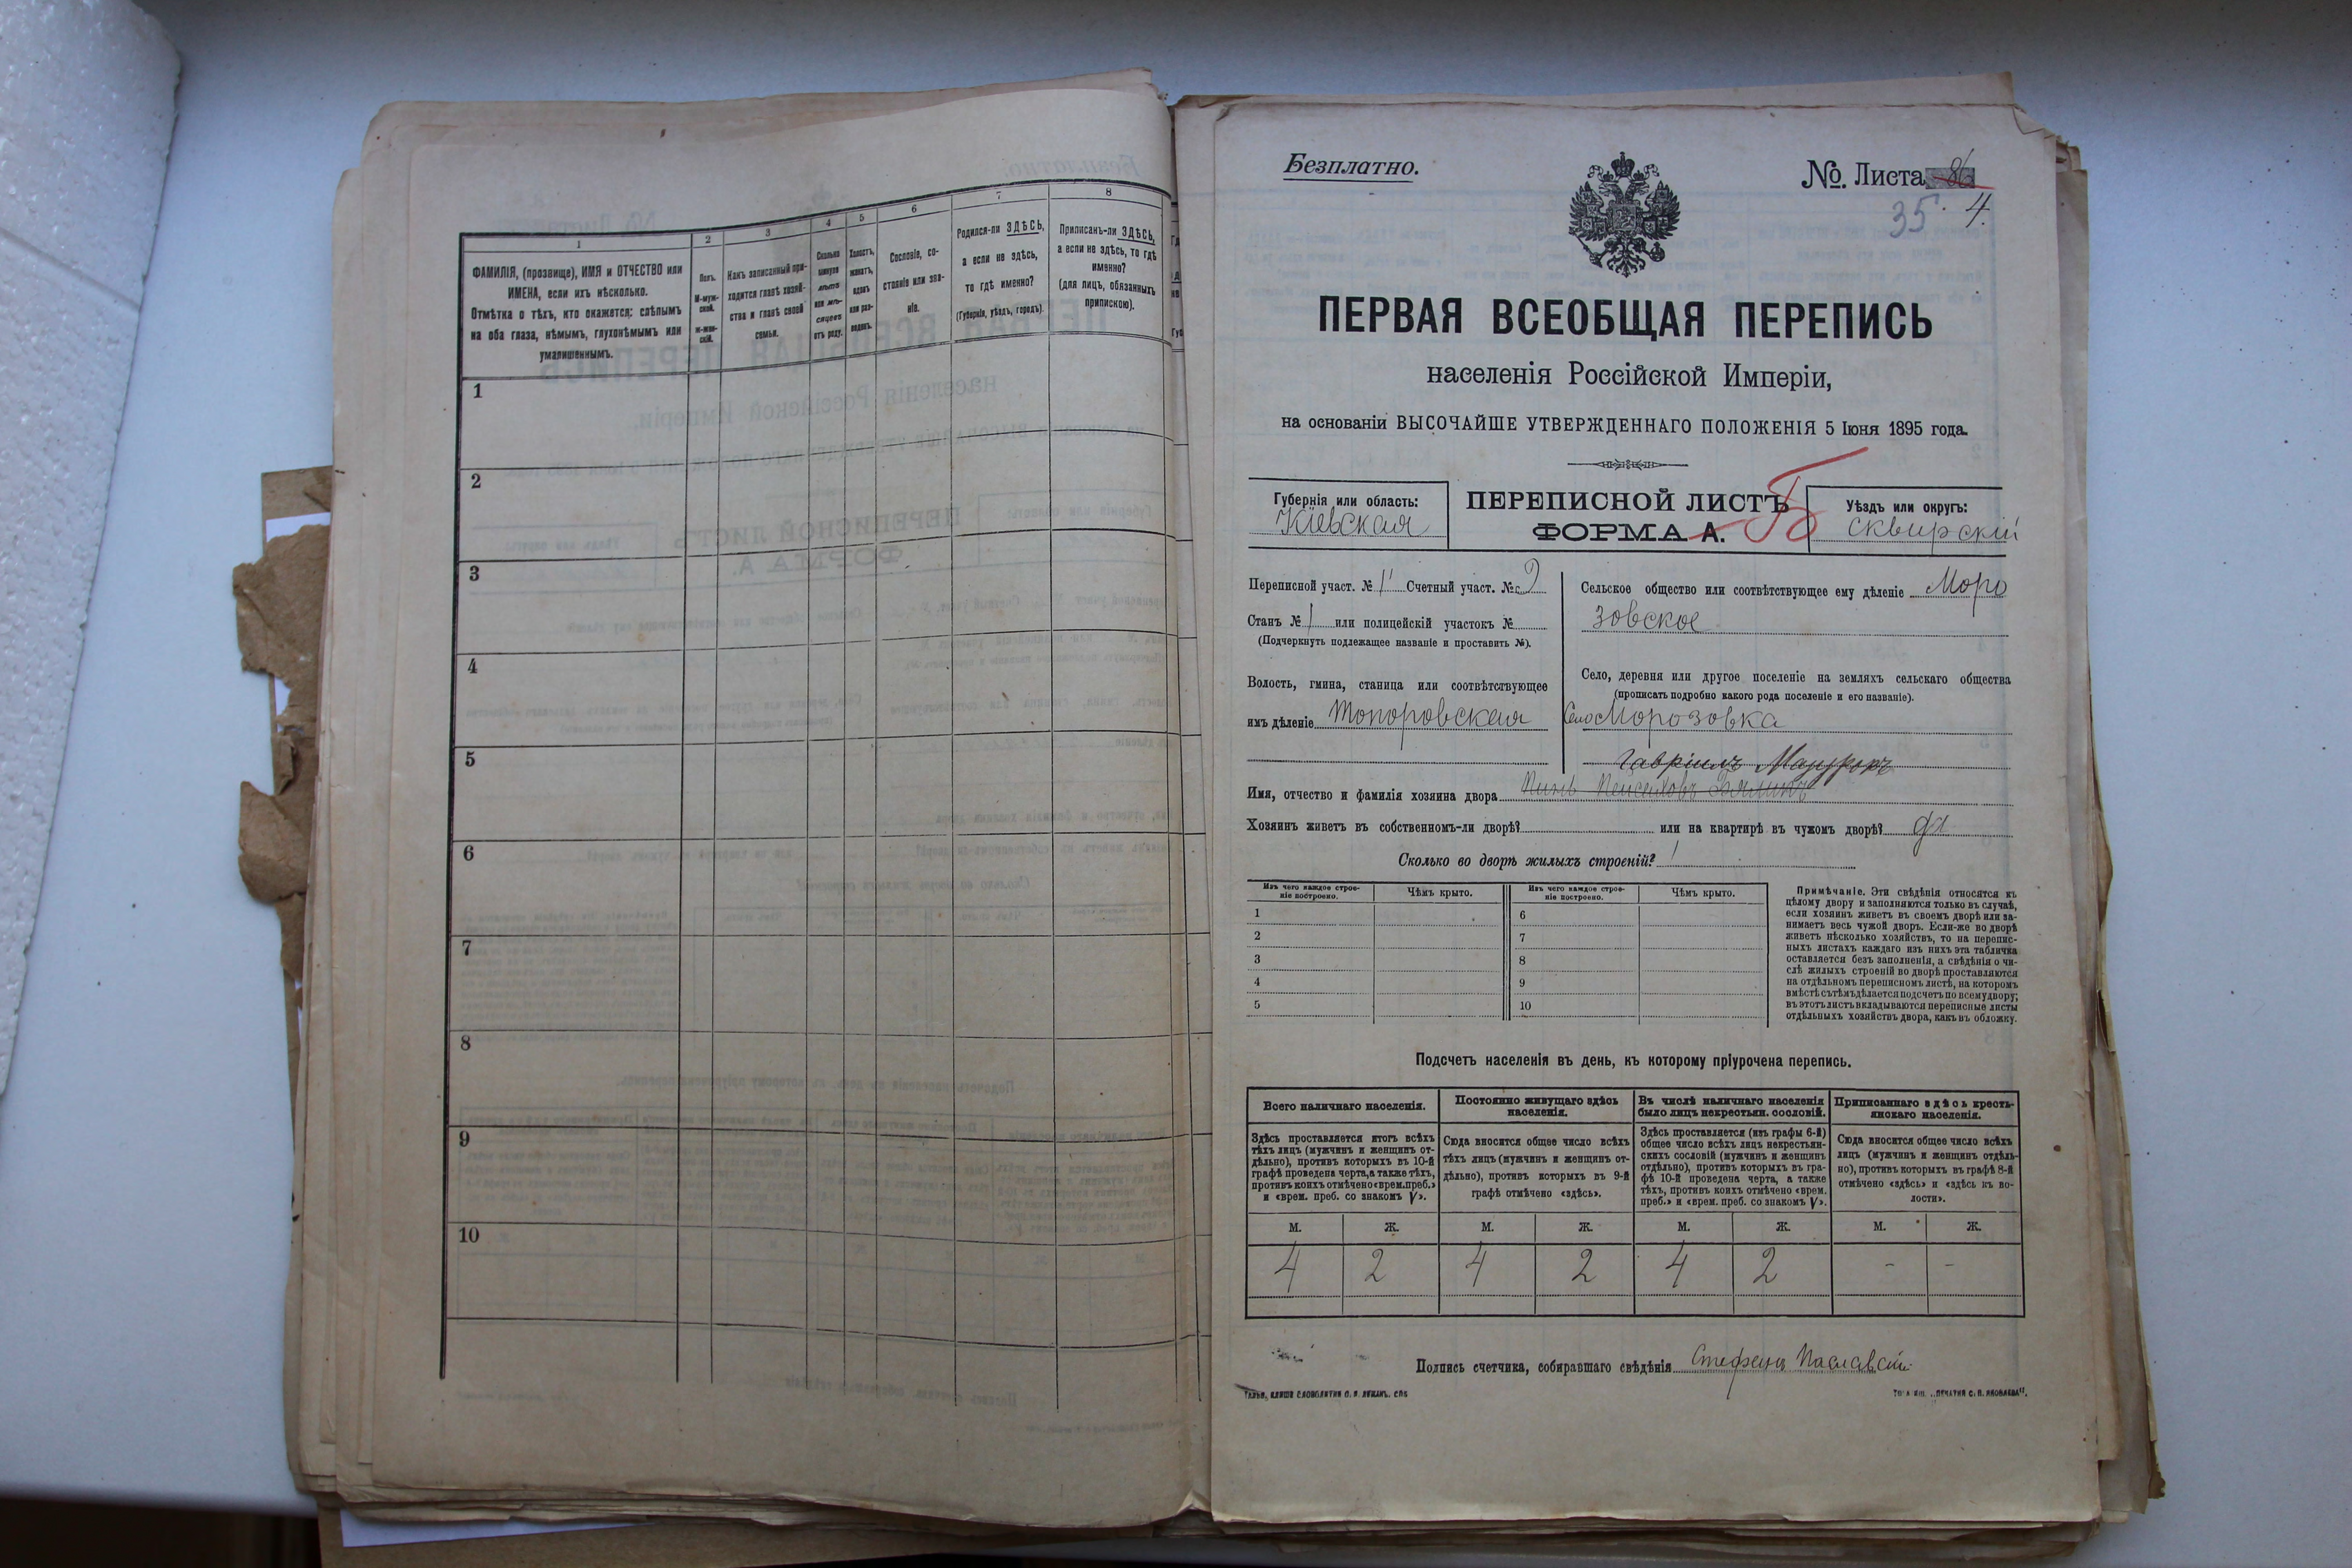 1
ФАМИЛІЯ, (прозвище), ИМЯ и ОТЧЕСТВО или
ИМЕНА, если ихъ нѣсколько.
Отмѣтка о тѣхъ, кто окажется: слѣпымъ
на оба глаза, нѣмымъ, глухонѣмымъ или
умалишеннымъ.
2
Полъ.
М-муж-
ской.
ж-жен-
скій.
3
Какъ записанный при-
ходится главѣ хозяй-
ства и главѣ своей
семьи.
4
Сколько
минуло
лѣтъ
или мѣ-
сяцевъ
отъ роду.
5
Холостъ,
женатъ,
вдовъ
или раз-
веденъ.
6
Сословіе, со-
стояніе или зва-
ніе.
7
Родился-ли ЗДѢСЬ,
а если не здѣсь,
то гдѣ именно?
(Губернія, уѣздъ, городъ).
8
Приписанъ-ли ЗДѢСЬ,
а если не здѣсь, то гдѣ
именно?
(для лицъ, обязанныхъ
припискою).
1
2
3
4
5
6
7
8
9
10
Безплатно.
№. Листа 86
35. 4.
ПЕРВАЯ ВСЕОБЩАЯ ПЕРЕПИСЬ
населенія Россійской Имперіи,
на основаніи ВЫСОЧАЙШЕ УТВЕРЖДЕННАГО ПОЛОЖЕНІЯ 5 Іюня 1895 года.
Губернія или область:
Кіевская
ПЕРЕПИСНОЙ ЛИСТЪ
ФОРМА А. Б
Уѣздъ или округъ:
Сквирскій
Переписной участ. № 1 Счетный участ. № 2
Станъ № 1 или полицейскій участокъ №
(Подчеркнуть подлежащее названіе и проставить №).
Волость, гмина, станица или соотвѣтствующее
имъ дѣленіе Топоровская
Сельское общество или соотвѣтствующее ему дѣленіе Моро
зовское
Село, деревня или другое поселеніе на земляхъ сельскаго общества
(прописать подробно какого рода поселеніе и его названіе).
Село Морозовка
Гавріилъ
Имя, отчество и фамилія хозяина двора
Хозяинъ живетъ въ собственномъ-ли дворѣ? или на квартирѣ въ чужомъ дворѣ? да
Сколько во дворѣ жилыхъ строеній? 1
Изъ чего каждое строе-
ніе построено.
Чѣмъ крыто.
Изъ чего каждое строе-
ніе построено.
Чѣмъ крыто.
1 6
2 7
3 8
4 9
5 10
Примѣчаніе. Эти свѣдѣнія относятся къ
цѣлому двору и заполняются только въ случаѣ,
если хозяинъ живетъ въ своемъ дворѣ или за-
нимаетъ весь чужой дворъ. Если-же во дворѣ
живетъ нѣсколько хозяйствъ, то на перепис-
ныхъ листахъ каждаго изъ нихъ эта табличка
оставляется безъ заполненія, а свѣдѣнія о чи-
слѣ жилыхъ строеній во дворѣ проставляются
на отдѣльномъ переписномъ листѣ, на которомъ
вмѣстѣ съ тѣмъ дѣлается подсчетъ по всему двору;
въ этотъ листъ вкладываются переписные листы
отдѣльныхъ хозяйствъ двора, какъ въ обложку.
Подсчетъ населенія въ день, къ которому пріурочена перепись.
Всего наличнаго населенія.
Здѣсь проставляется итогъ всѣхъ
тѣхъ лицъ (мужчинъ и женщинъ от-
дѣльно), противъ которыхъ въ 10-й
графѣ проведена черта, а также тѣхъ,
противъ коихъ отмѣчено «врем. преб.»
и «врем. преб. со знакомъ V».
Постоянно живущаго здѣсь
населенія.
Сюда вносится общее число всѣхъ
тѣхъ лицъ (мужчинъ и женщинъ от-
дѣльно), противъ которыхъ въ 9-й
графѣ отмѣчено «здѣсь».
Въ числѣ наличнаго населенія
было лицъ некрестьян. сословій.
Здѣсь проставляется (изъ графы 6-й)
общее число всѣхъ лицъ некрестьян-
скихъ сословій (мужчинъ и женщинъ
отдѣльно), противъ которыхъ въ гра-
фѣ 10-й проведена черта, а также
тѣхъ, противъ коихъ отмѣчено «врем.
преб.» и «врем. преб. со знакомъ V».
Приписаннаго здѣсь кресть-
янскаго населенія.
Сюда вносится общее число всѣхъ
лицъ (мужчинъ и женщинъ отдѣль-
но), противъ которыхъ въ графѣ 8-й
отмѣчено «здѣсь» и «здѣсь къ во-
лости».
М. Ж. М. Ж. М. Ж. М. Ж.
4 2 4 2 4 2 - -
Подпись счетчика, собиравшаго свѣдѣнія